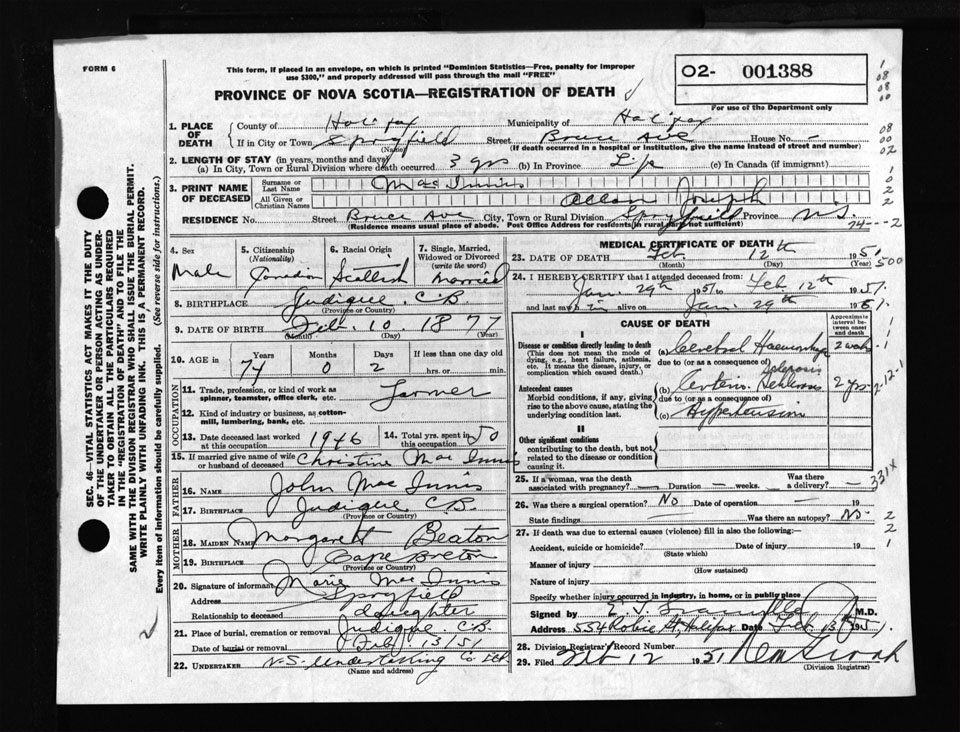 FORM 6
This form, if placed in an envelope, on which is printed "Dominion Statistics—Free, penalty for improper
use $300," and properly addressed will pass through the mail "FREE"
PROVINCE OF NOVA SCOTIA—REGISTRATION OF DEATH
O2- 001388
For use of the Department only
1. PLACE OF DEATH
County of Halifax Municipality of Halifax
If in City or Town Spryfield Street Bruce Ave House No. -
(Name) (If death occurred in a hospital or institution, give the name instead of street and number)
2. LENGTH OF STAY (in years, months and days)
(a) In City, Town or Rural Division where death occurred 3 yrs (b) In Province Life (c) In Canada (if immigrant)
3. PRINT NAME OF DECEASED
Surname or Last Name Mac Innis
All Given or Christian Names Allan Joseph
RESIDENCE No. Street Bruce Ave City, Town or Rural Division Spryfield Province N.S.
(Residence means usual place of abode. Post Office Address for residents in rural parts not sufficient) 74---2
4. Sex Male
5. Citizenship (Nationality) Canadian
6. Racial Origin Scottish
7. Single, Married, Widowed or Divorced (write the word) Married
8. BIRTHPLACE Judique C.B.
(Province or Country)
9. DATE OF BIRTH Feb. 10 1877
(Month) (Day) (Year)
10. AGE in Years 74 Months 0 Days 2 If less than one day old hrs. or min.
OCCUPATION
11. Trade, profession, or kind of work as spinner, teamster, office clerk, etc. Farmer
12. Kind of industry or business, as cotton-mill, lumbering, bank, etc.
13. Date deceased last worked at this occupation 1946
14. Total yrs. spent in this occupation 50
15. If married give name of wife or husband of deceased Christine Mac Innis
FATHER
16. NAME John Mac Innis
17. BIRTHPLACE Judique C.B.
(Province or Country)
MOTHER
18. MAIDEN NAME Margaret Beaton
19. BIRTHPLACE Cape Breton
(Province or Country)
20. Signature of informant Marie Mac Innis
Address Spryfield
Relationship to deceased daughter
21. Place of burial, cremation or removal Judique C.B.
Date of burial or removal Feb. 13/51
22. UNDERTAKER N.S. Undertaking Co Ltd
(Name and address)
MEDICAL CERTIFICATE OF DEATH
23. DATE OF DEATH Feb. 12th 1951
(Month) (Day) (Year) 500
24. I HEREBY CERTIFY that I attended deceased from:
Jan. 29th 1951 to Feb 12th 1951
and last saw h im alive on Jan. 29th 1951
CAUSE OF DEATH
Approximate interval between onset and death
I
Disease or condition directly leading to death
(This does not mean the mode of dying, e.g., heart failure, asthenia, etc. It means the disease, injury, or complication which caused death.)
(a) Cerebral Haemorrhage 2 weeks
due to (or as a consequence of)
Antecedent causes
Morbid conditions, if any, giving rise to the above cause, stating the underlying condition last.
(b) Sclerosis 2 yrs
due to (or as a consequence of)
(c) Hypertension
II
Other significant conditions
contributing to the death, but not related to the disease or condition causing it.
25. If a woman, was the death associated with pregnancy? — Duration — weeks. Was there a delivery? — 331X
26. Was there a surgical operation? No Date of operation 19
State findings Was there an autopsy? No
27. If death was due to external causes (violence) fill in also the following:
Accident, suicide or homicide? Date of injury 19
(State which)
Manner of injury
(How sustained)
Nature of injury
Specify whether injury occurred in industry, in home, or in public place
Signed by M.D.
Address 554 Robie St, Halifax Date Feb 13th 1951.
28. Division Registrar's Record Number
29. Filed Feb 12 1951
(Division Registrar)
SEC. 46—VITAL STATISTICS ACT MAKES IT THE DUTY
OF THE UNDERTAKER OR PERSON ACTING AS UNDER-
TAKER TO OBTAIN ALL THE PARTICULARS REQUIRED
IN THE "REGISTRATION OF DEATH" AND TO FILE THE
SAME WITH THE DIVISION REGISTRAR WHO SHALL ISSUE THE BURIAL PERMIT.
WRITE PLAINLY WITH UNFADING INK. THIS IS A PERMANENT RECORD.
Every item of information should be carefully supplied. (See reverse side for instructions.)